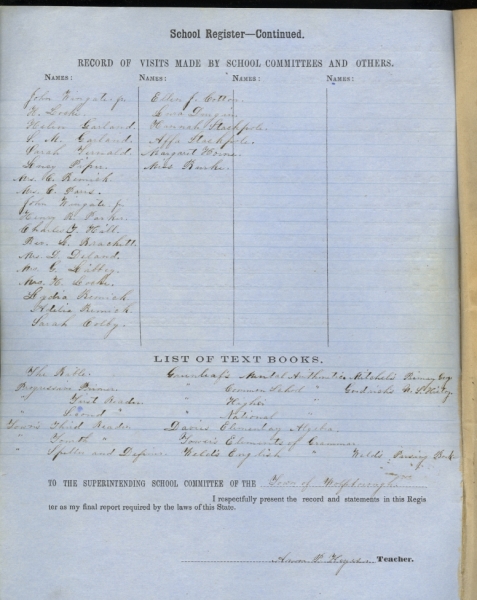 School Register—Continued.
RECORD OF VISITS MADE BY SCHOOL COMMITTEES AND OTHERS.
NAMES: NAMES: NAMES: NAMES:
John Wingate jr Ellen J. Cotton
H. Locke
Garland Hannah Stackpole
M. Garland Affa Stackpole
Sarah Margaret Horne
Lucy Piper Miss Burke
Mrs. C. Remick
Mrs. C.
John Wingate jr
Henry R. Parker
Charles F. Hill
Rev. L. Brackett
Mrs. D. Deland
Mrs. G. Libbey
Mrs. H. Locke
Lydia Remick
Adelia Remick
Sarah Colby
LIST OF TEXT BOOKS.
The Bible Greenleaf's Mental Arithmetic Mitchell's Primary Geog
Progressive Primer " Common School " Goodrich's U. S. History
" First Reader " Higher "
" Second " " National "
Town's Third Reader Davies Elementary Algebra
" Fourth " Town's Elements of Grammar
" Speller and Definer Weld's English " Weld's Parsing Book
TO THE SUPERINTENDING SCHOOL COMMITTEE OF THE Town of Wolfborough
I respectfully present the record and statements in this Regis
ter as my final report required by the laws of this State.
Teacher.